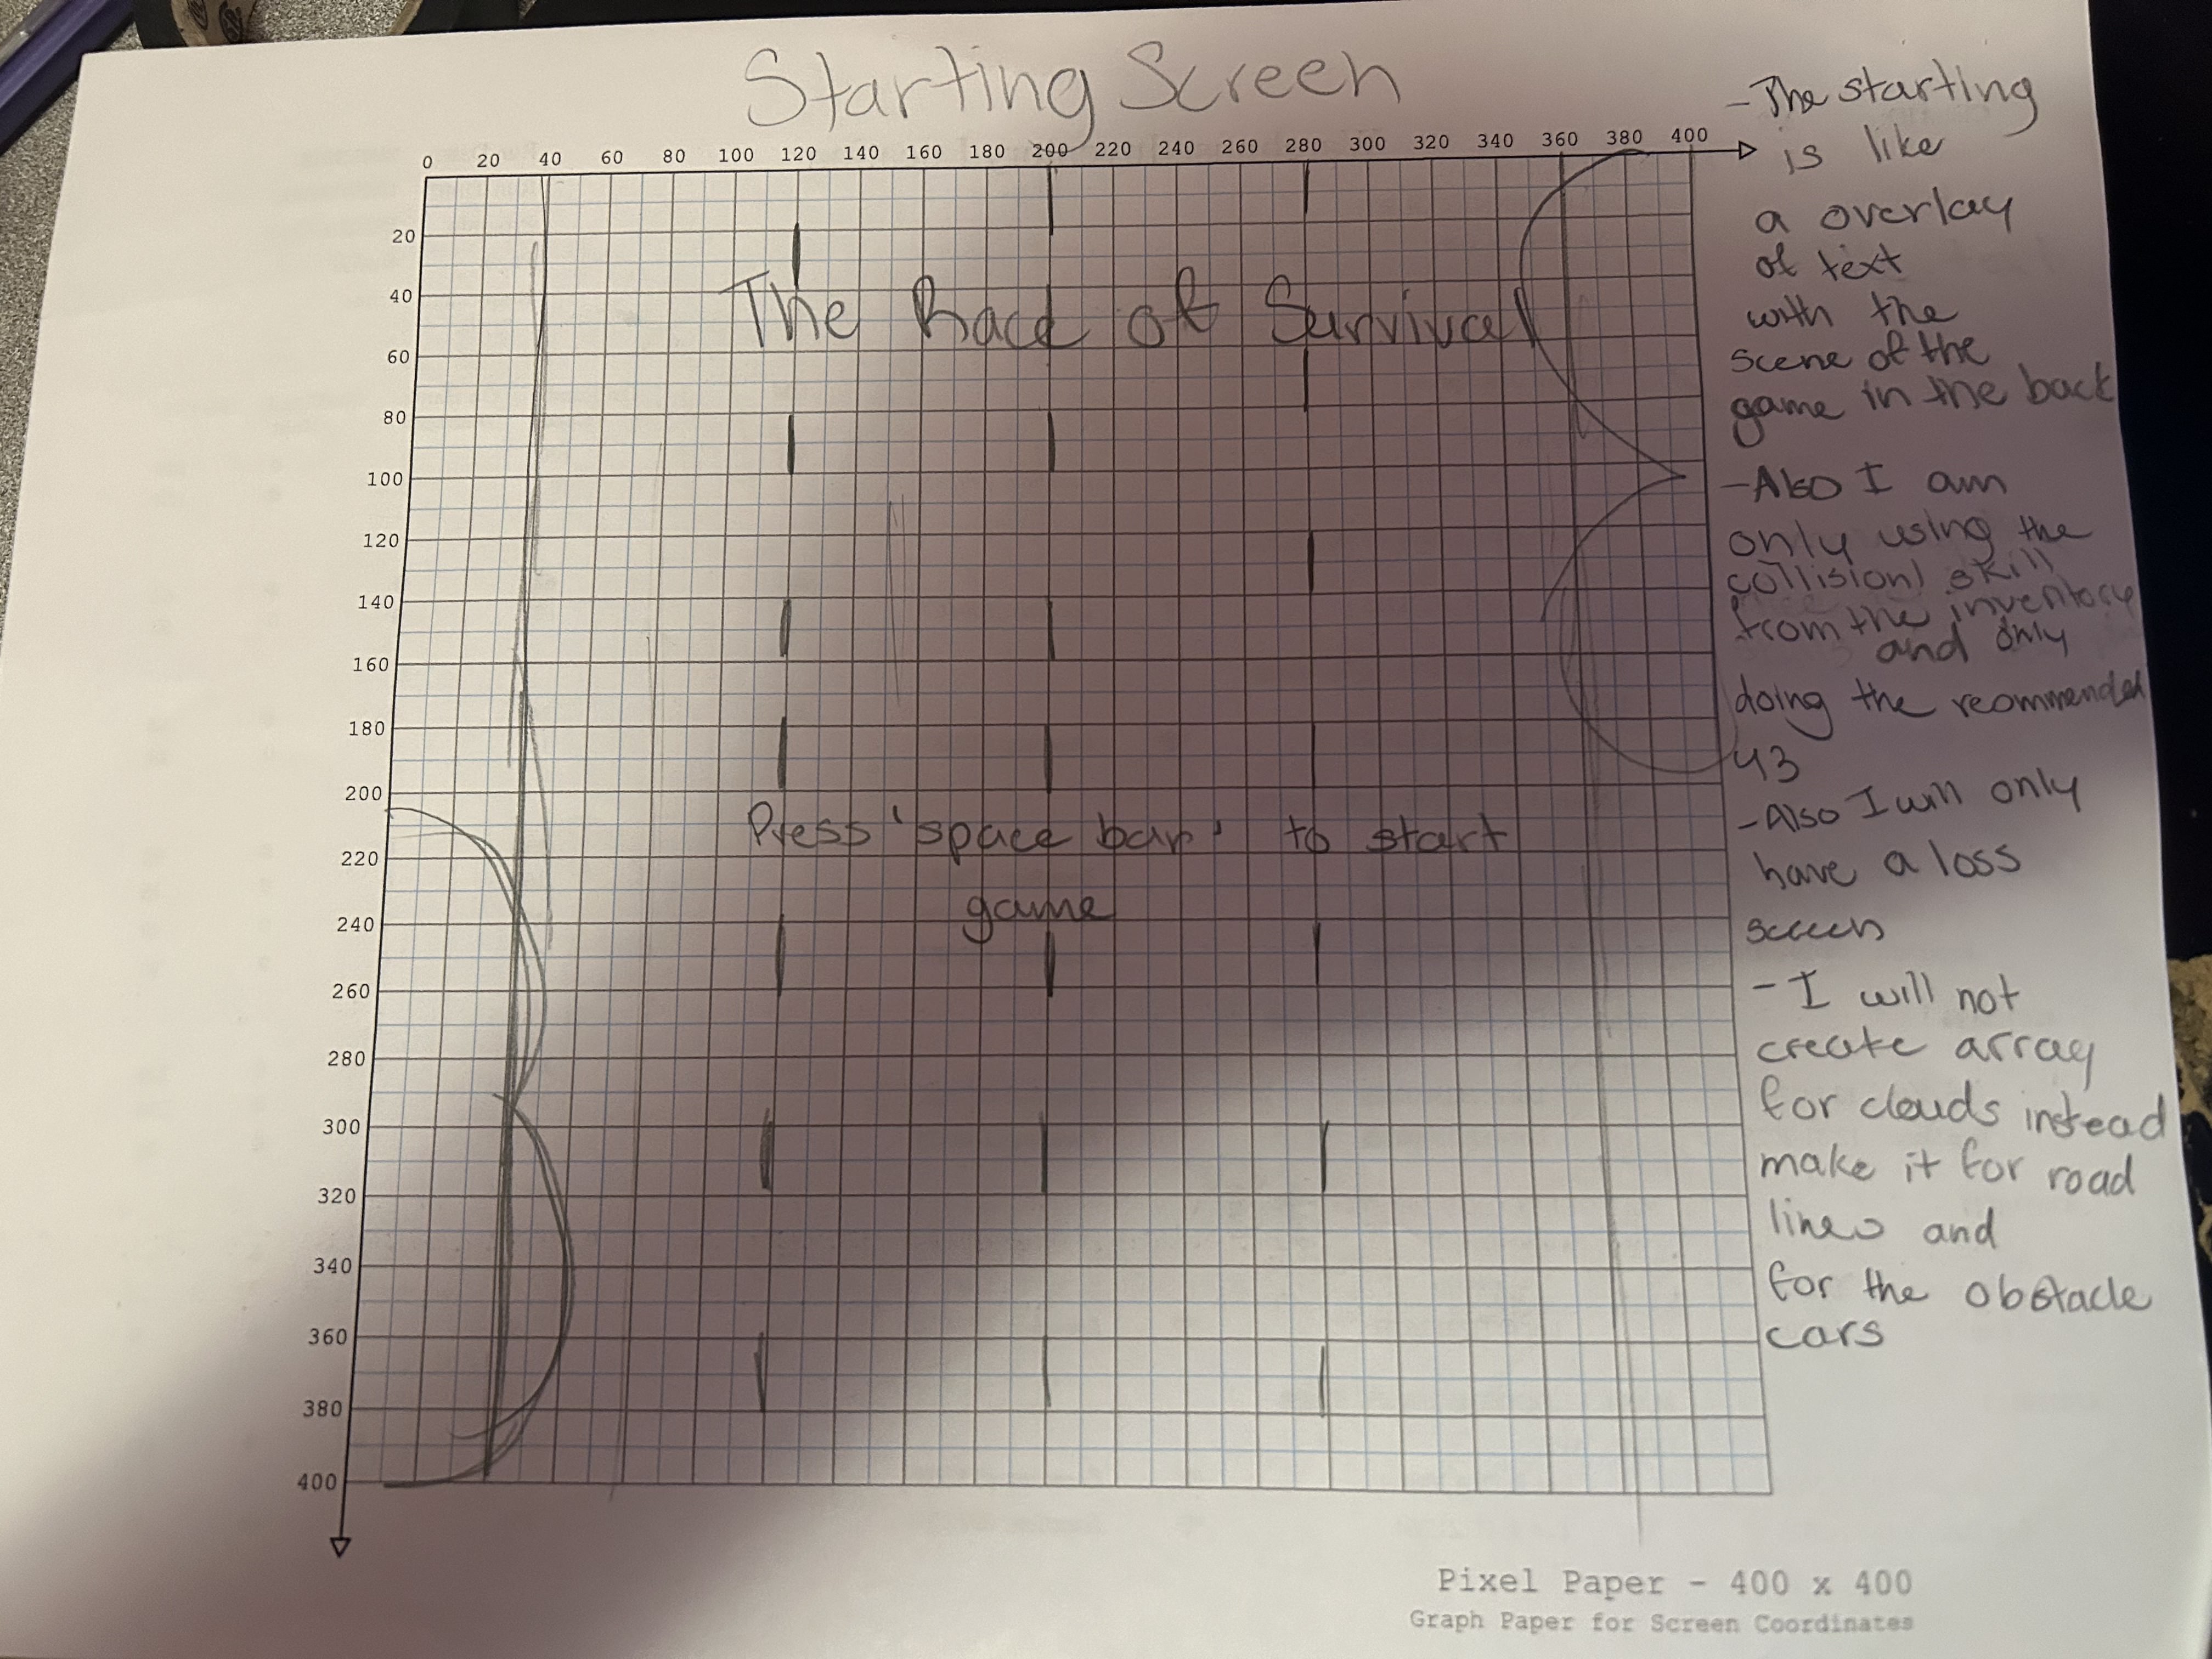 Starting Screen
0 20 40 60 80 100 120 140 160 180 200 220 240 260 280 300 320 340 360 380 400
20
40
60
80
100
120
140
160
180
200
220
240
260
280
300
320
340
360
380
400
The Race of Survival
Press 'space bar' to start
game
- The starting
is like
a overlay
of text
with the
scene of the
game in the back
- Also I am
only using the
collision skill
from the inventory
and only
doing the recommended
43
- Also I will only
have a loss
screen
- I will not
create array
for clouds instead
make it for road
lines and
for the obstacle
cars
Pixel Paper - 400 x 400
Graph Paper for Screen Coordinates